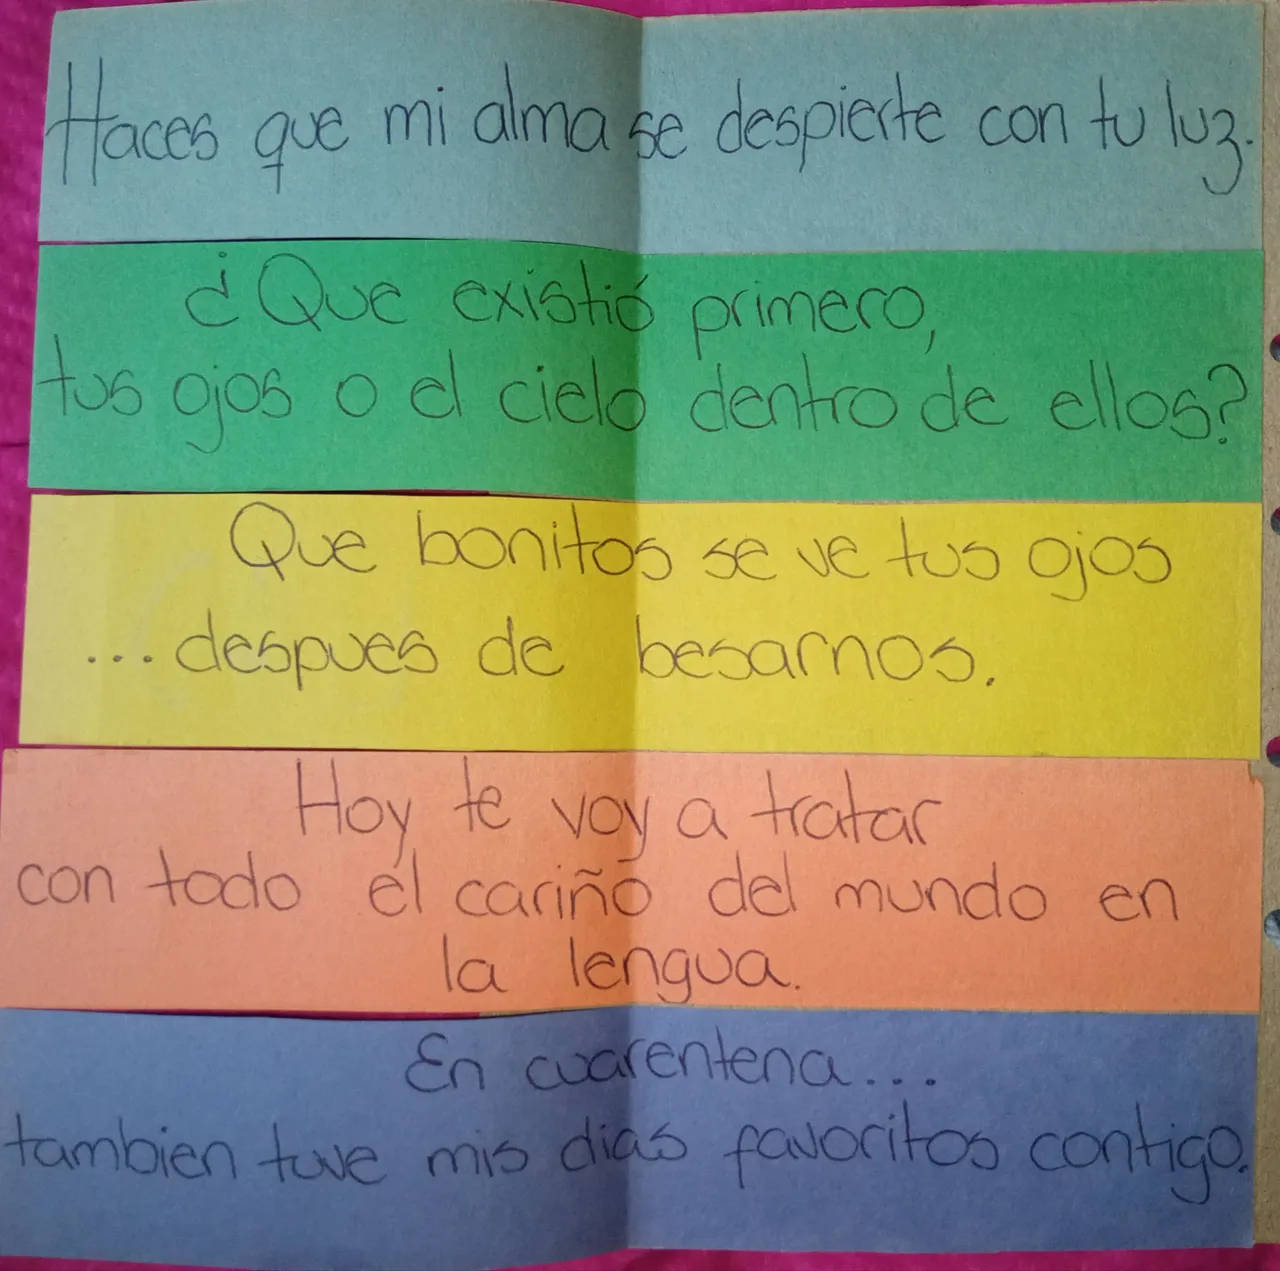 Haces que mi alma se despierte con tu luz.
¿Que existió primero,
tus ojos o el cielo dentro de ellos?
Que bonitos se ve tus ojos
... despues de besarnos.
Hoy te voy a tratar
con todo el cariño del mundo en
la lengua.
En cuarentena...
tambien tuve mis dias favoritos contigo.